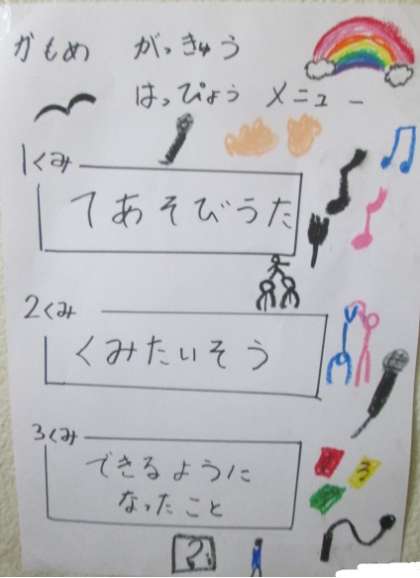 かもめ がっきゅう
はっぴょう メニュー
1くみ
てあそびうた
2くみ
くみたいそう
3くみ
できるように
なったこと